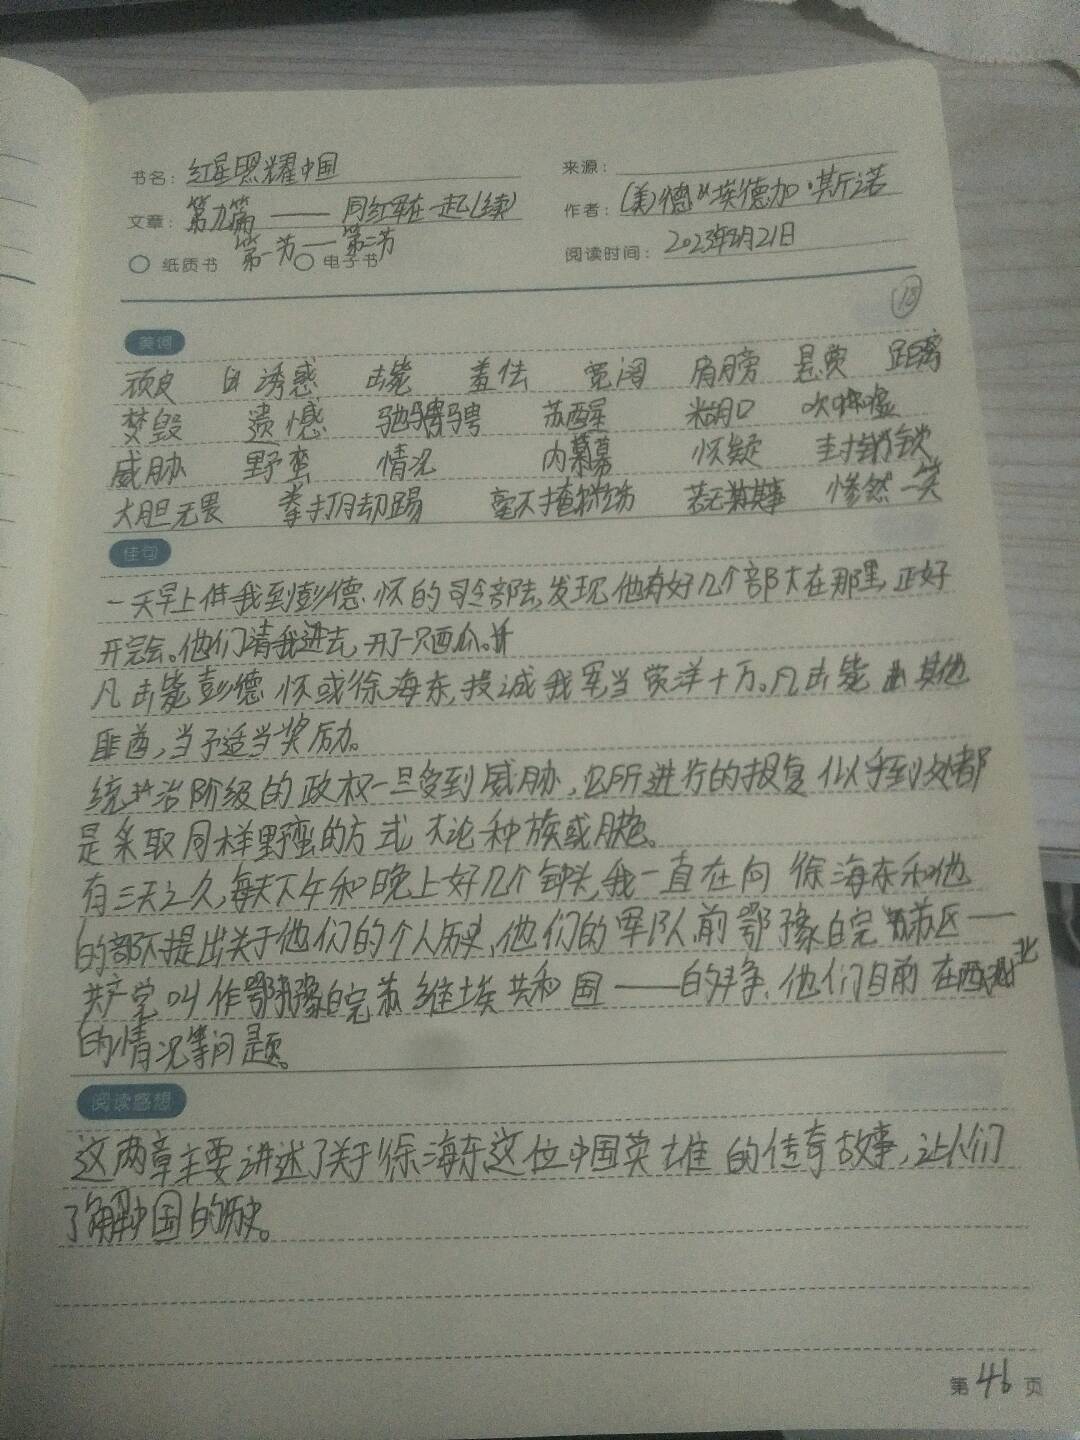 书名：红星照耀中国
来源：
文章：第九篇——同红军在一起(续)
作者：(美)埃德加·斯诺
第一节——第二节
纸质书 电子书
阅读时间：2023年3月21日
18
美词
顽皮 诱惑 击毙 羞怯 宽阔 肩膀 悬赏 距离
焚毁 遗憾 驰骋 苏醒 糊口 欷歔
威胁 野蛮 情况 内幕 怀疑 封锁
大胆无畏 拳打脚踢 毫不掩饰 若无其事 惨然一笑
佳句
一天早上 我到彭德怀的司令部去,发现他有好几个部下在那里,正好
开完会。他们请我进去,开了一只西瓜。
凡击毙彭德怀或徐海东,投诚我军,当赏洋十万。凡击毙其他
匪酋,当予适当奖励。
统治阶级的政权一旦受到威胁,它所进行的报复似乎到处都
是采取同样野蛮的方式,不论种族或肤色。
有三天之久,每天下午和晚上好几个钟头,我一直在向徐海东和他
的部下提出关于他们的个人历史,他们的军队,前鄂豫皖苏区——
共产党叫作鄂豫皖苏维埃共和国——的斗争,他们目前在西北
的情况等问题。
阅读感想
这两章主要讲述了关于徐海东这位中国英雄的传奇故事,让人们
了解中国的历史。
第46页